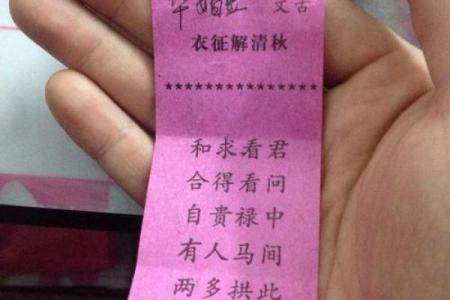 秋清解征衣
***************
君问中间此
看看禄马拱
求得贵人多
和合自有两